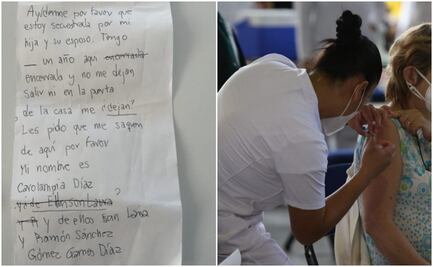 Ayúdenme por favor que
estoy secuestrada por mi
hija y su esposo. Tengo
un año aquí encerrada
encerrada y no me dejan
Salir ni en la puerta
de la casa me ¿dejan?
Les pido que me saquen
de aquí por favor
Mi nombre es
Carolampia Díaz
?
y de ellos son Lana
y Ramón Sánchez
Gómez Gamos Díaz